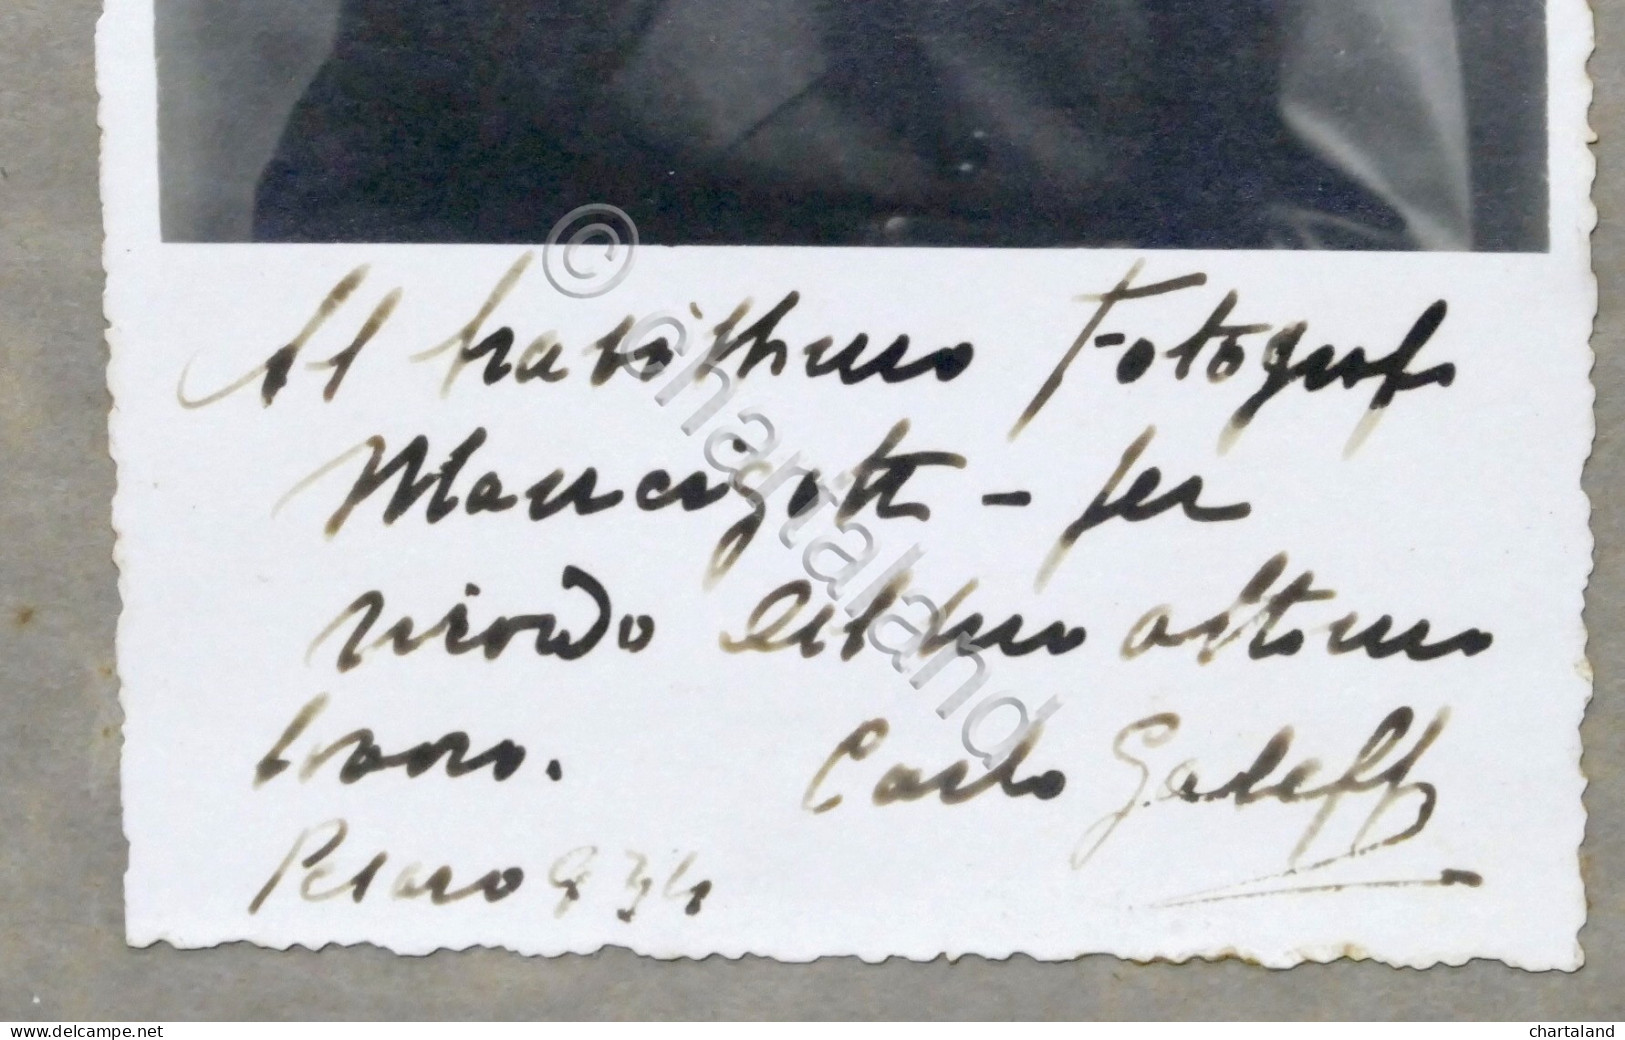 Al bravissimo Fotografo
Mancigotti - per
ricordo dell'ultimo ottimo
lavoro. Carlo Galeffi
Pesaro 934
© chartaland
www.delcampe.net
chartaland